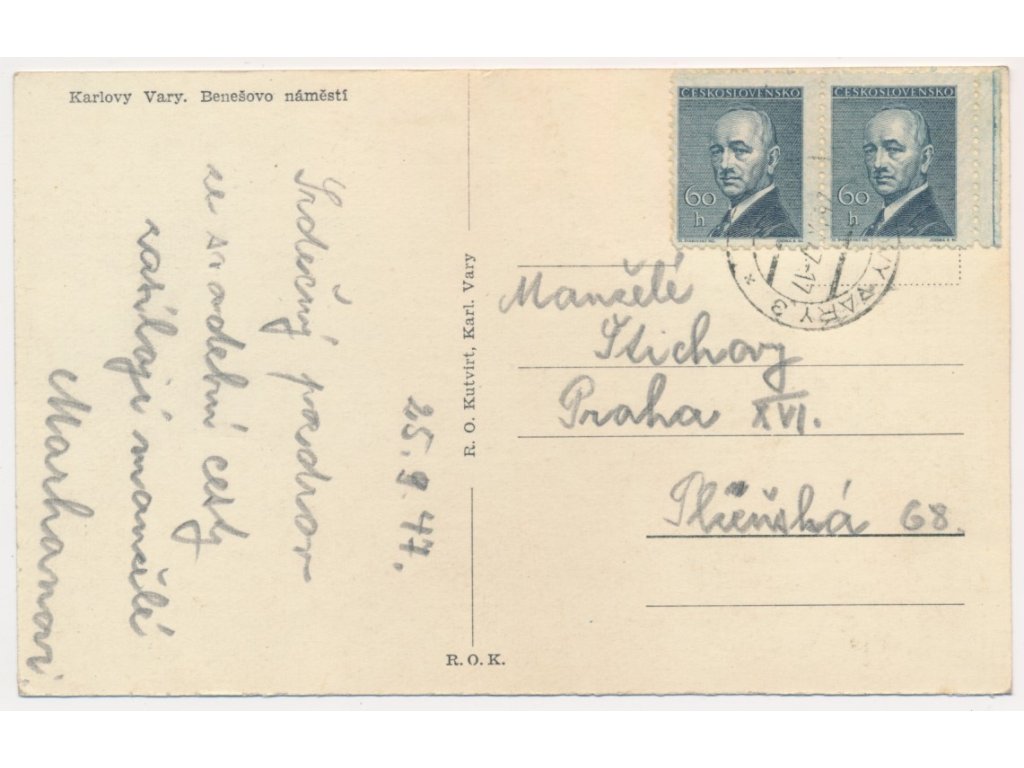 Karlovy Vary. Benešovo náměstí
ČESKOSLOVENSKO
60
h
ČESKOSLOVENSKO
60
h
VY VARY 3 *
47-17
Srdečný pozdrav
ze svadební cesty
zasílají manželé
Marhanovi.
25. 9. 47.
R. O. Kutvirt, Karl. Vary
R.O.K.
Manželé
Stichovy
Praha XVI.
Plzeňská 68.